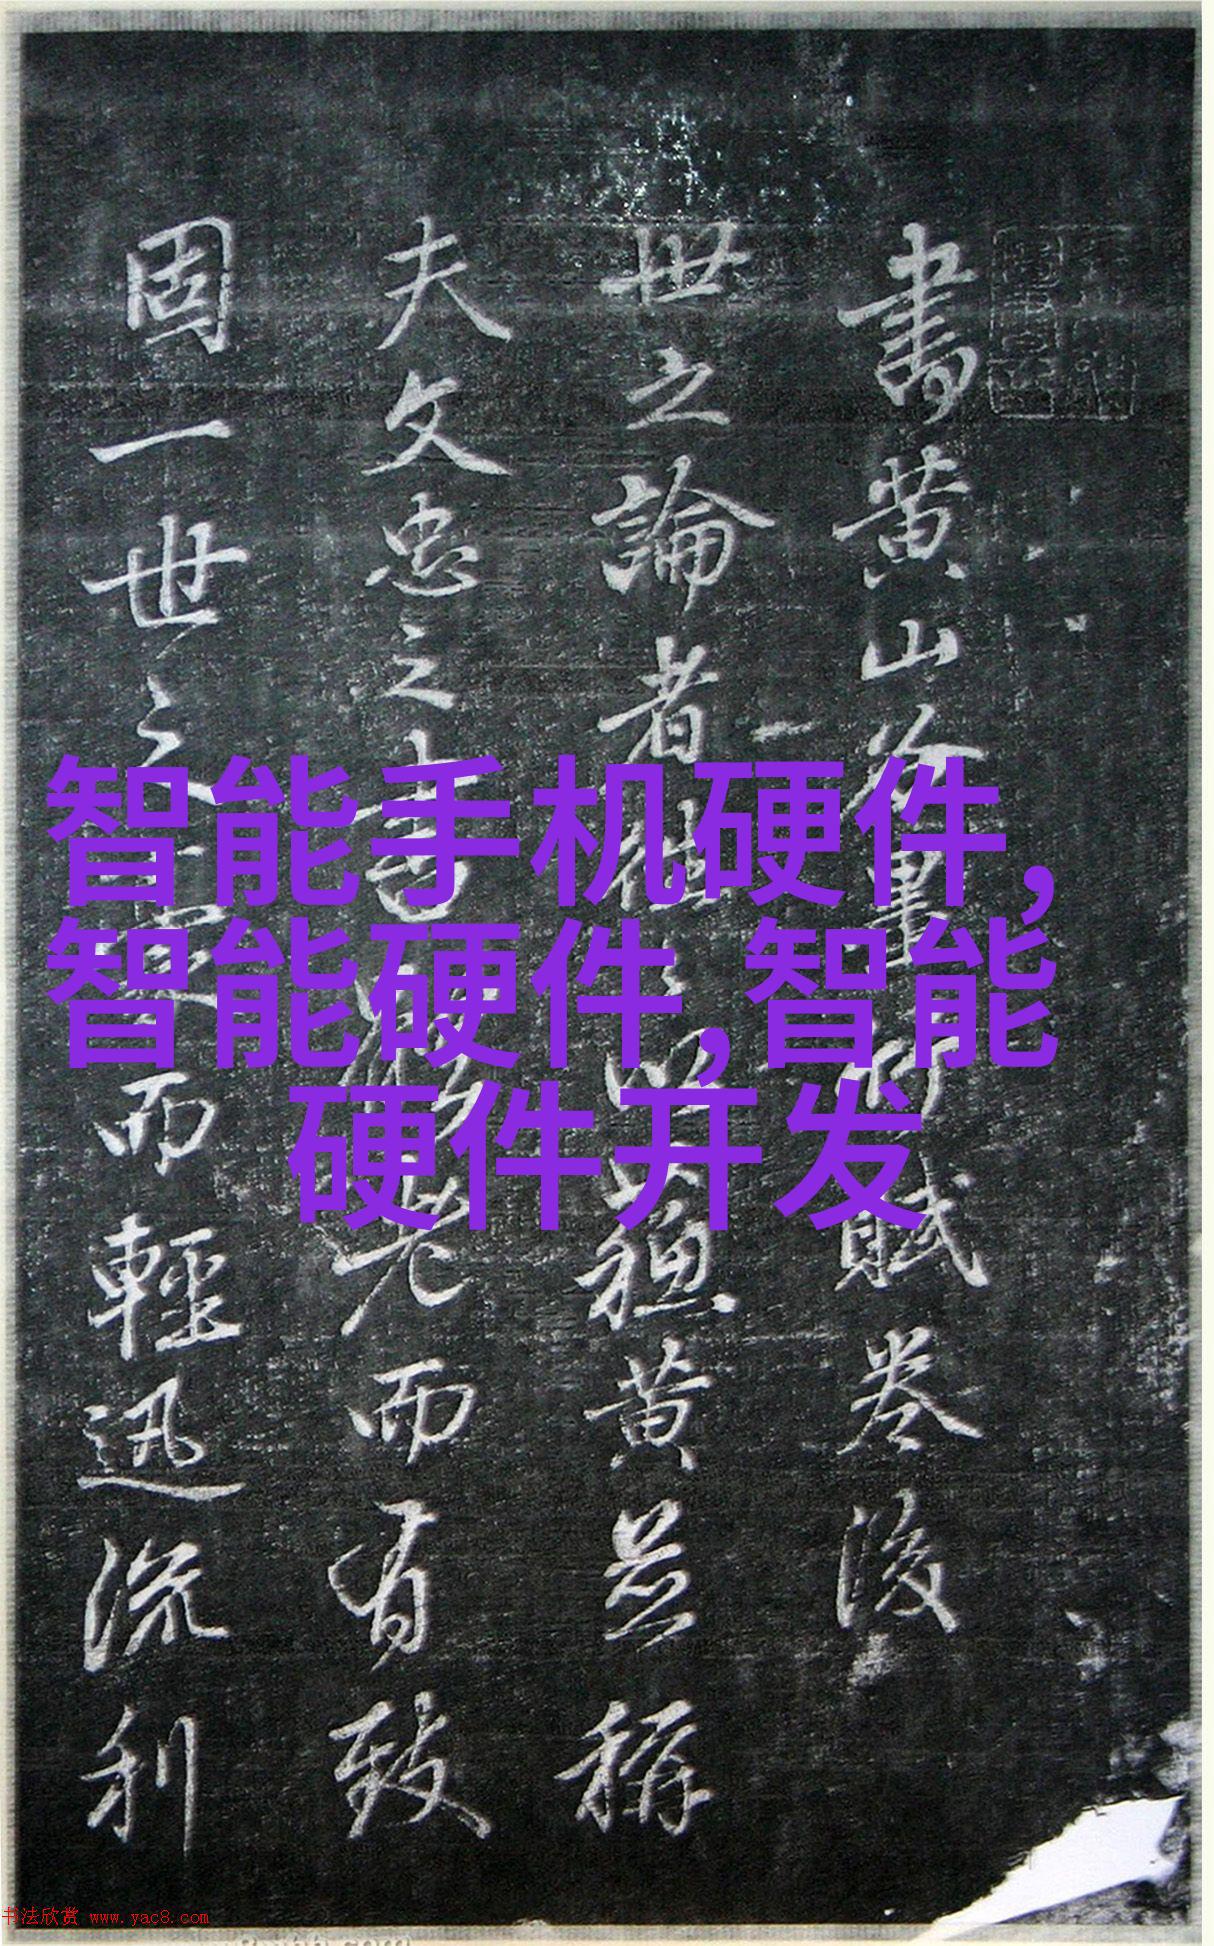 書黄山谷墨竹賦卷後
世之論者以蘓黄並稱
夫文忠之書老而有致
固一世之而輕迅流利
智能手机硬件,
智能硬件,智能
硬件开发
书法欣赏 www.yac8.com